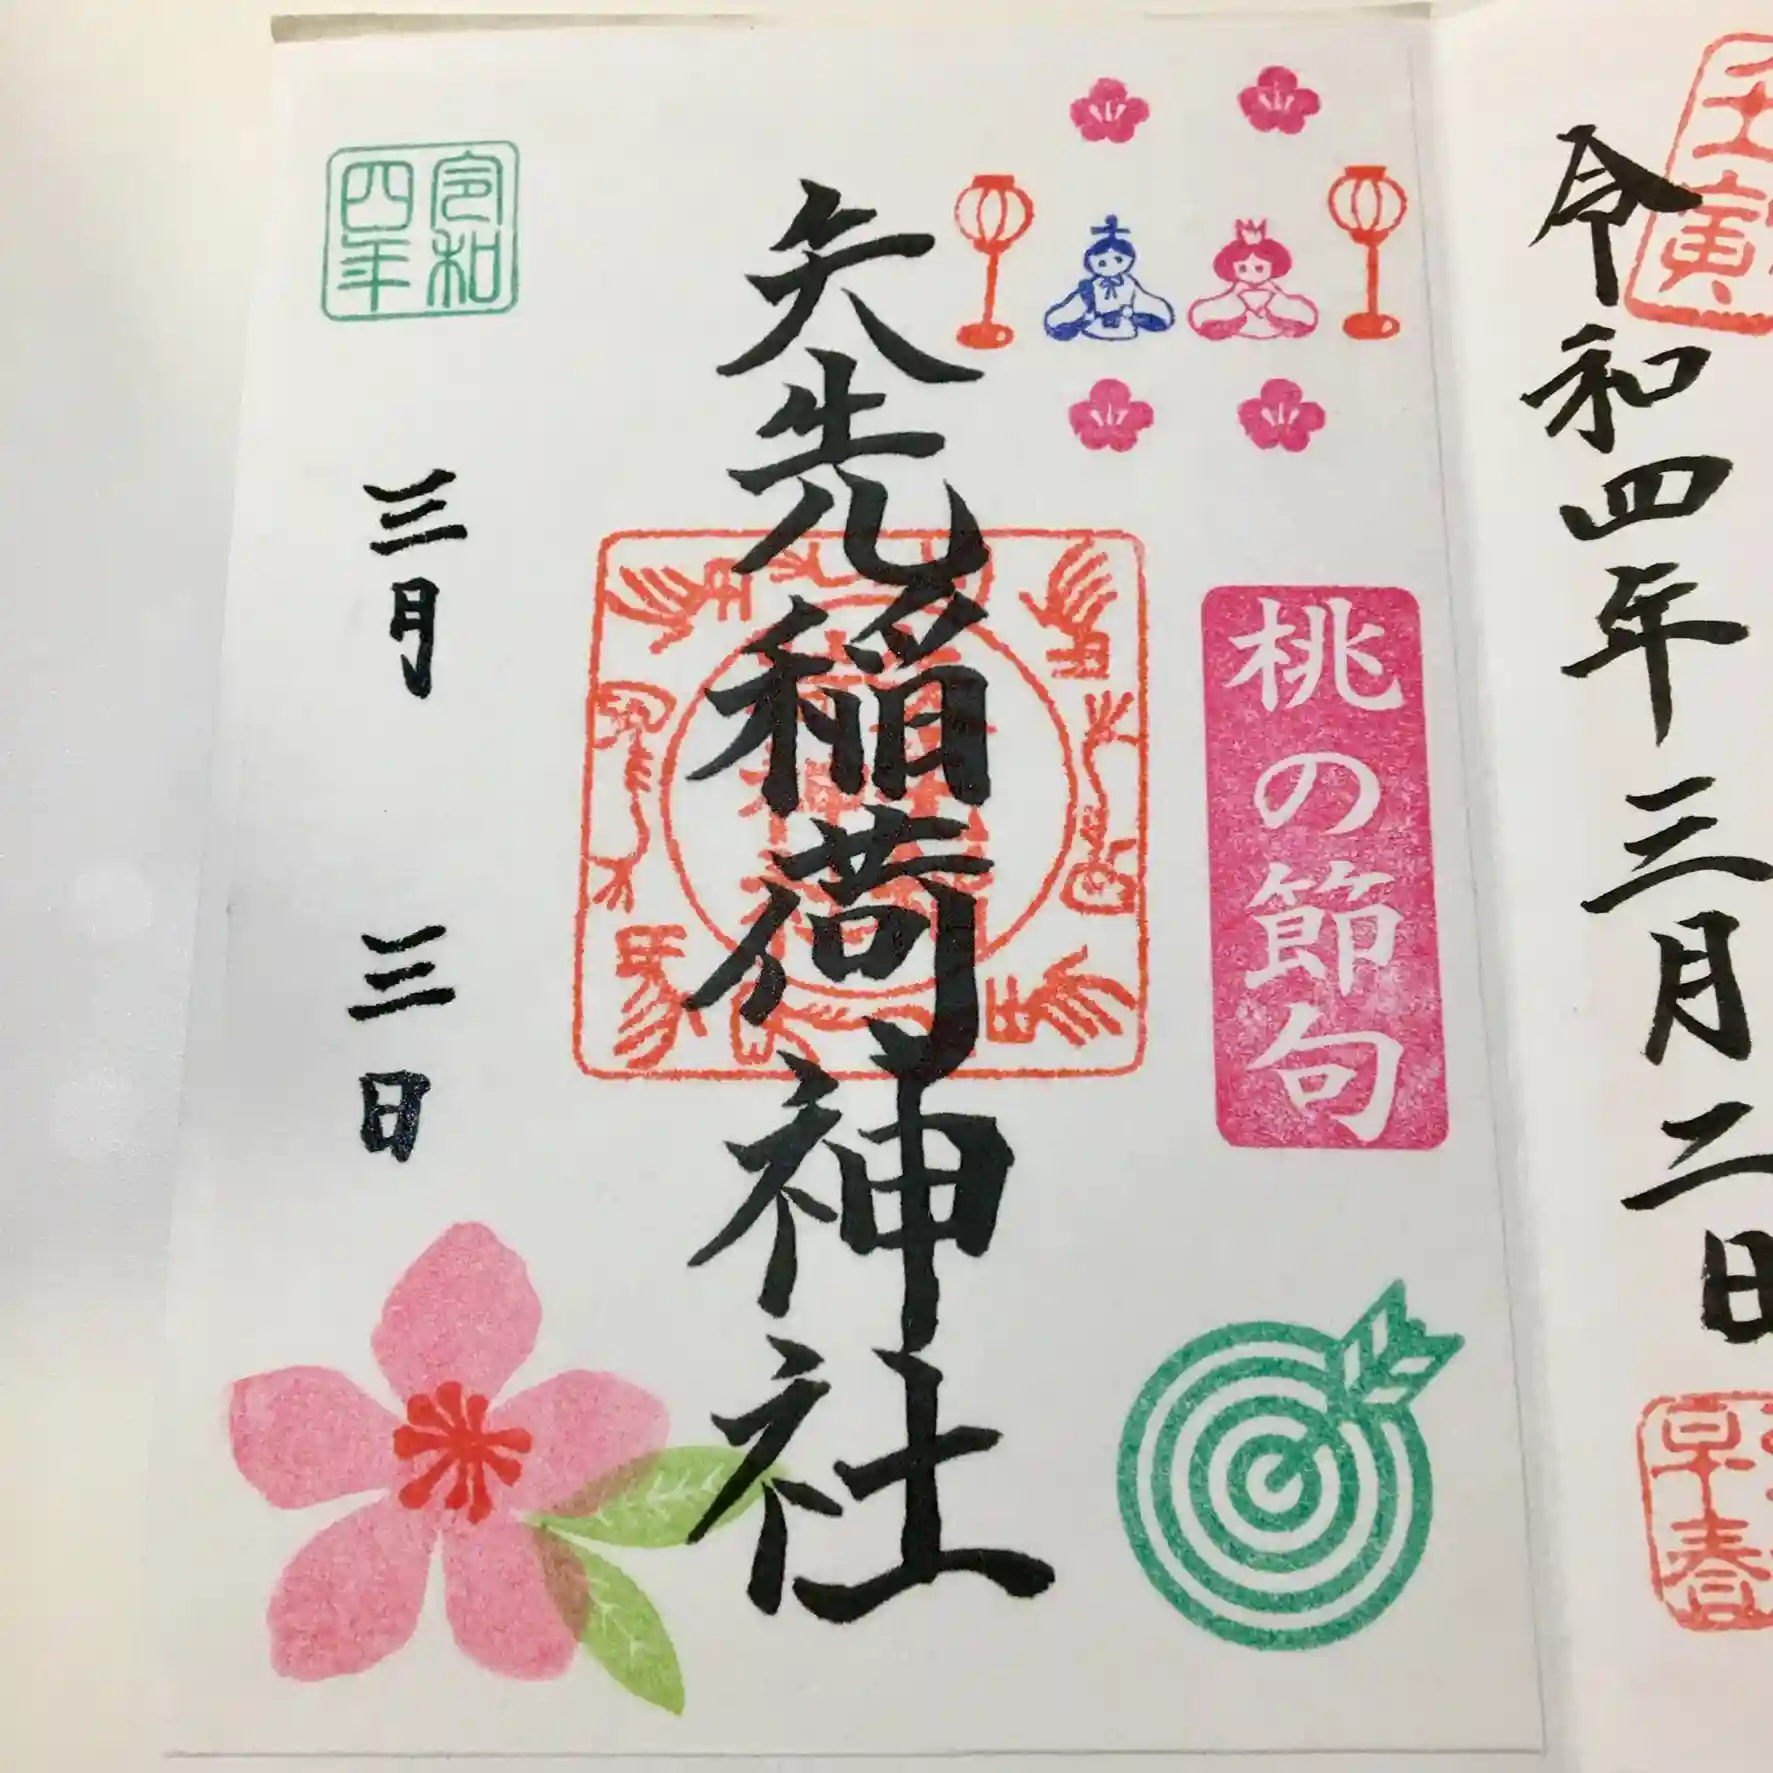 壬寅
令和四年三月二日
早春
桃の節句
矢先稲荷神社
令和
四年
三月三日